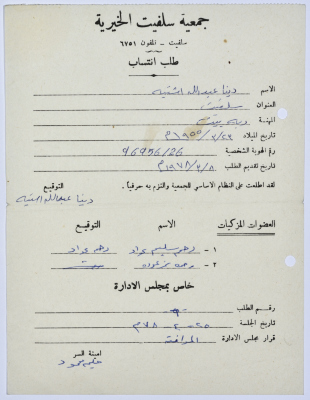 جمعية سلفيت الخيرية
سلفيت - تلفون ٦٧٥١
طلب انتساب
الاسم دينا عبدالله اشتيه
العنوان سلفيت
المهنة ربة بيت
تاريخ الميلاد ١٩٥٥/٢/٢٦م
رقم الهوية الشخصية 96956/26
تاريخ تقديم الطلب ١٩٧٨/٢/٨م
لقد اطلعت على النظام الاساسي للجمعية والتزم به حرفيا.
التوقيع
دينا عبدالله اشتيه
العضوات المزكيات الاسم التوقيع
١ -
٢ -
خاص بمجلس الادارة
رقم الطلب
تاريخ الجلسة
قرار مجلس الادارة الموافقة
امينة السر